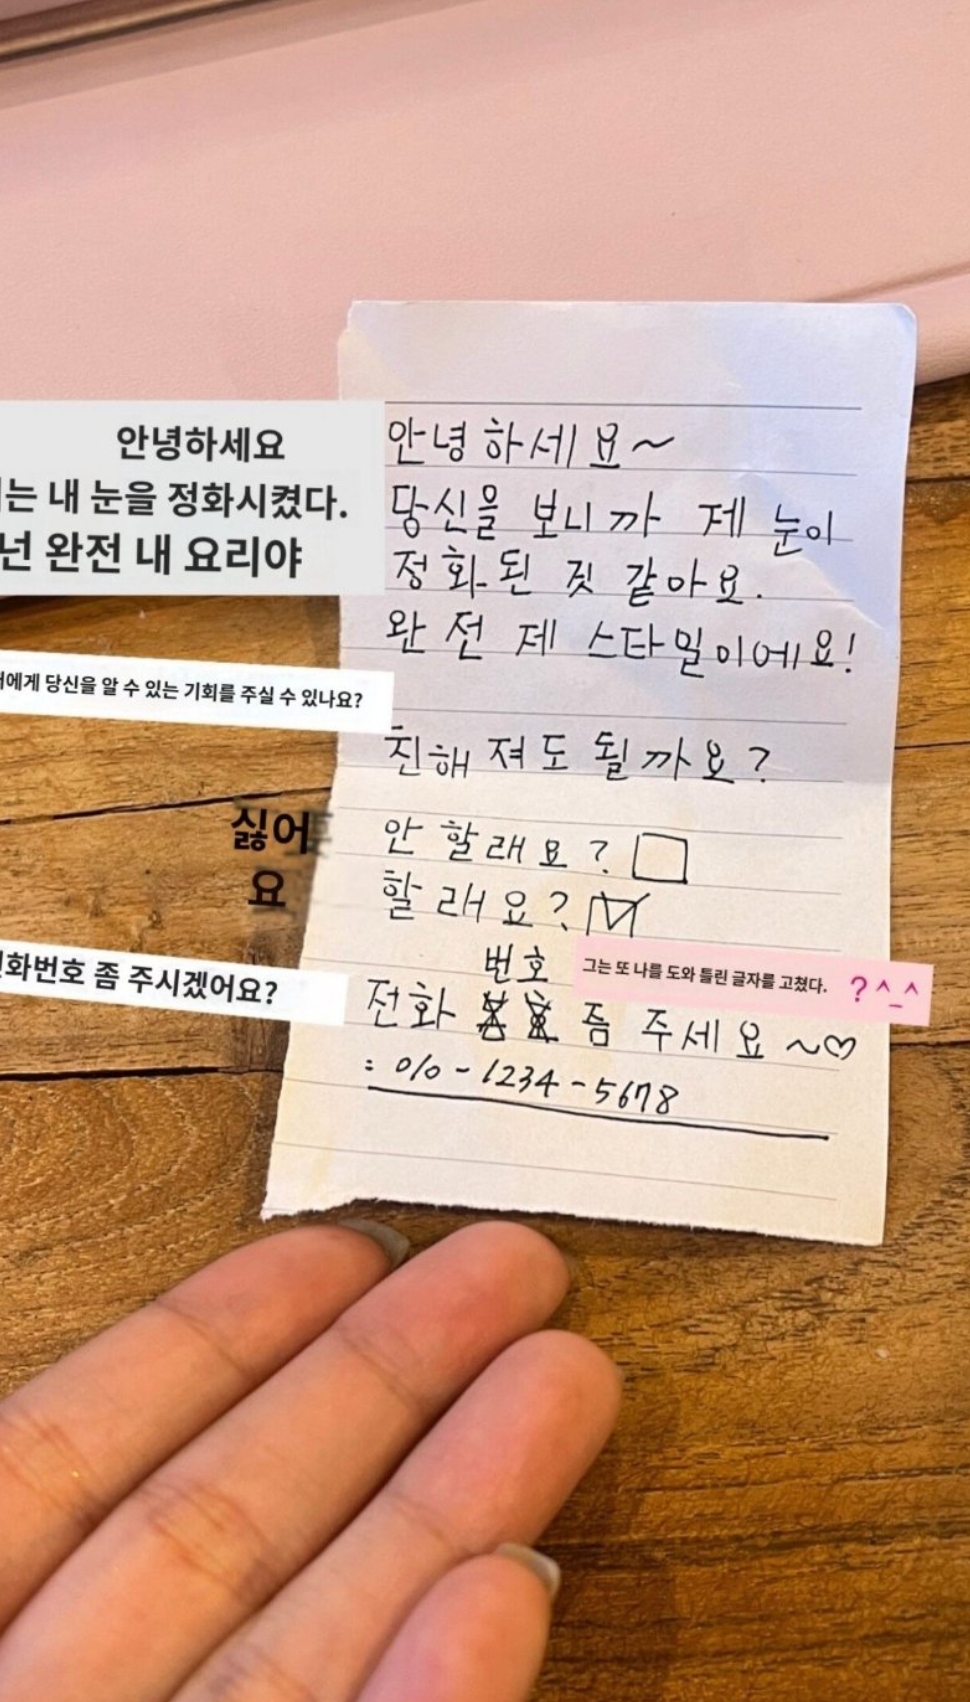 안녕하세요
는 내 눈을 정화시켰다.
넌 완전 내 요리야
에게 당신을 알 수 있는 기회를 주실 수 있나요?
싫어
요
화번호 좀 주시겠어요?
안녕하세요~
당신을 보니까 제 눈이
정화된 짓 같아요.
완전 제 스타밀이에요!
친해져도 될까요?
안 할래요?
할래요?
번호
전화 좀 주세요~♡
: 010-1234-5678
그는 또 나를 도와 틀린 글자를 고쳤다. ?^_^